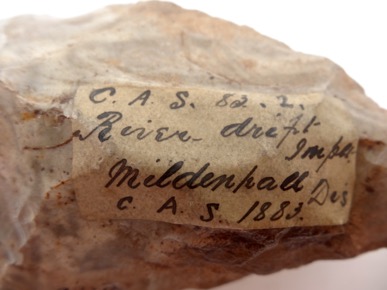 C. A. S. 82. 2.
River drift
Mildenhall Des
C. A. S. 1883.